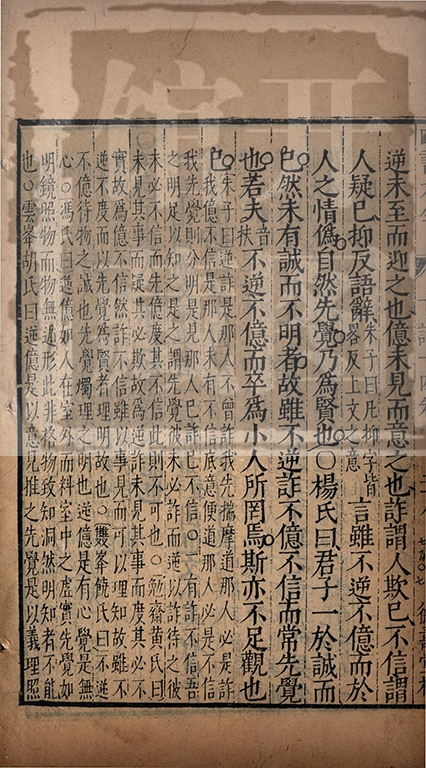 逆未至而迎之也億未見而意之也詐謂人欺已不信謂
人疑已抑反語辭朱子曰凡抑字皆畧反上文之意言雖不逆不億而於
人之情偽自然先覺乃爲賢也○楊氏曰君子一於誠而
已然未有誠而不明者故雖不逆詐不億不信而常先覺
也若夫音扶不逆不億而卒爲小人所罔焉斯亦不足觀也
已○朱子曰逆詐是那人不曾詐我先揣摩道那人必是詐
我億不信是那人未有不信底意便道那人必是不信
我先覺則分明是見那人已詐已不信○一有詐不信吾
之明足以知之是之謂先覺彼未必詐而逆以詐待之彼
未必不信而先億度其不信此則不可也○勉齋黃氏曰
未見其事而疑其必欺故爲逆詐未見其事而度其必不
實故爲億不信然詐不信雖以事見而可以理知故雖不
逆不度而以先覺爲賢者理明故也○雙峯饒氏曰不逆
不億待物之誠也先覺燭理之明也逆億是有心覺是無
心○馮氏曰逆億如人在室外而料室中之虛實先覺如
明鏡照物而物無遁形此非格物致知洞然明知者不能
也○雲峯胡氏曰逆億是以意見推之先覺是以義理照